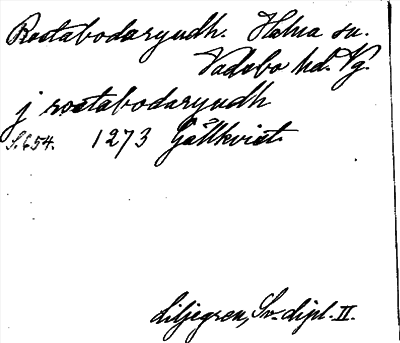 Rostabodaryudh. Halna sn.
Vadsbo hd. Vg.
j rostabodaryudh
S. 654. 1273 Gällkvist.
Liljegren, Sv. dipl. II.